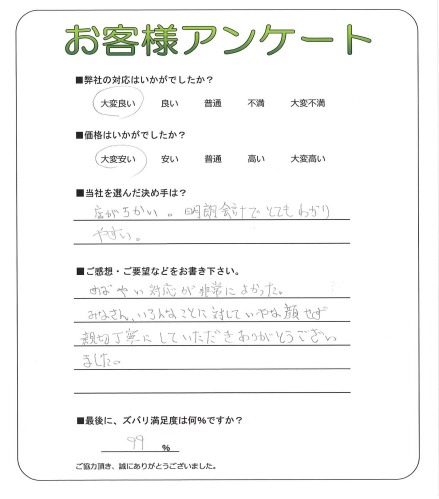 お客様アンケート
■弊社の対応はいかがでしたか？
大変良い 良い 普通 不満 大変不満
■価格はいかがでしたか？
大変安い 安い 普通 高い 大変高い
■当社を選んだ決め手は？
店がちかい。明朗会計でとてもわかり
やすい。
■ご感想・ご要望などをお書き下さい。
めばやい対応が非常によかった。
みなさん、いろんなことに対していやな顔せず
親切丁寧にしていただきありがとうござい
ました。
■最後に、ズバリ満足度は何%ですか？
99 %
ご協力頂き、誠にありがとうございました。